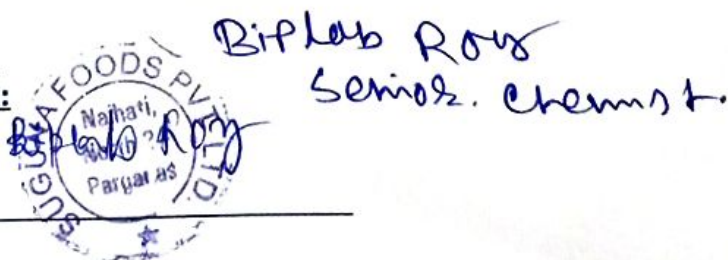 Biplab Roy
Senior. Chemist.
:
SUGUNA FOODS PVT LTD.
Naihati,
North 24
Parganas
Biplab Roy